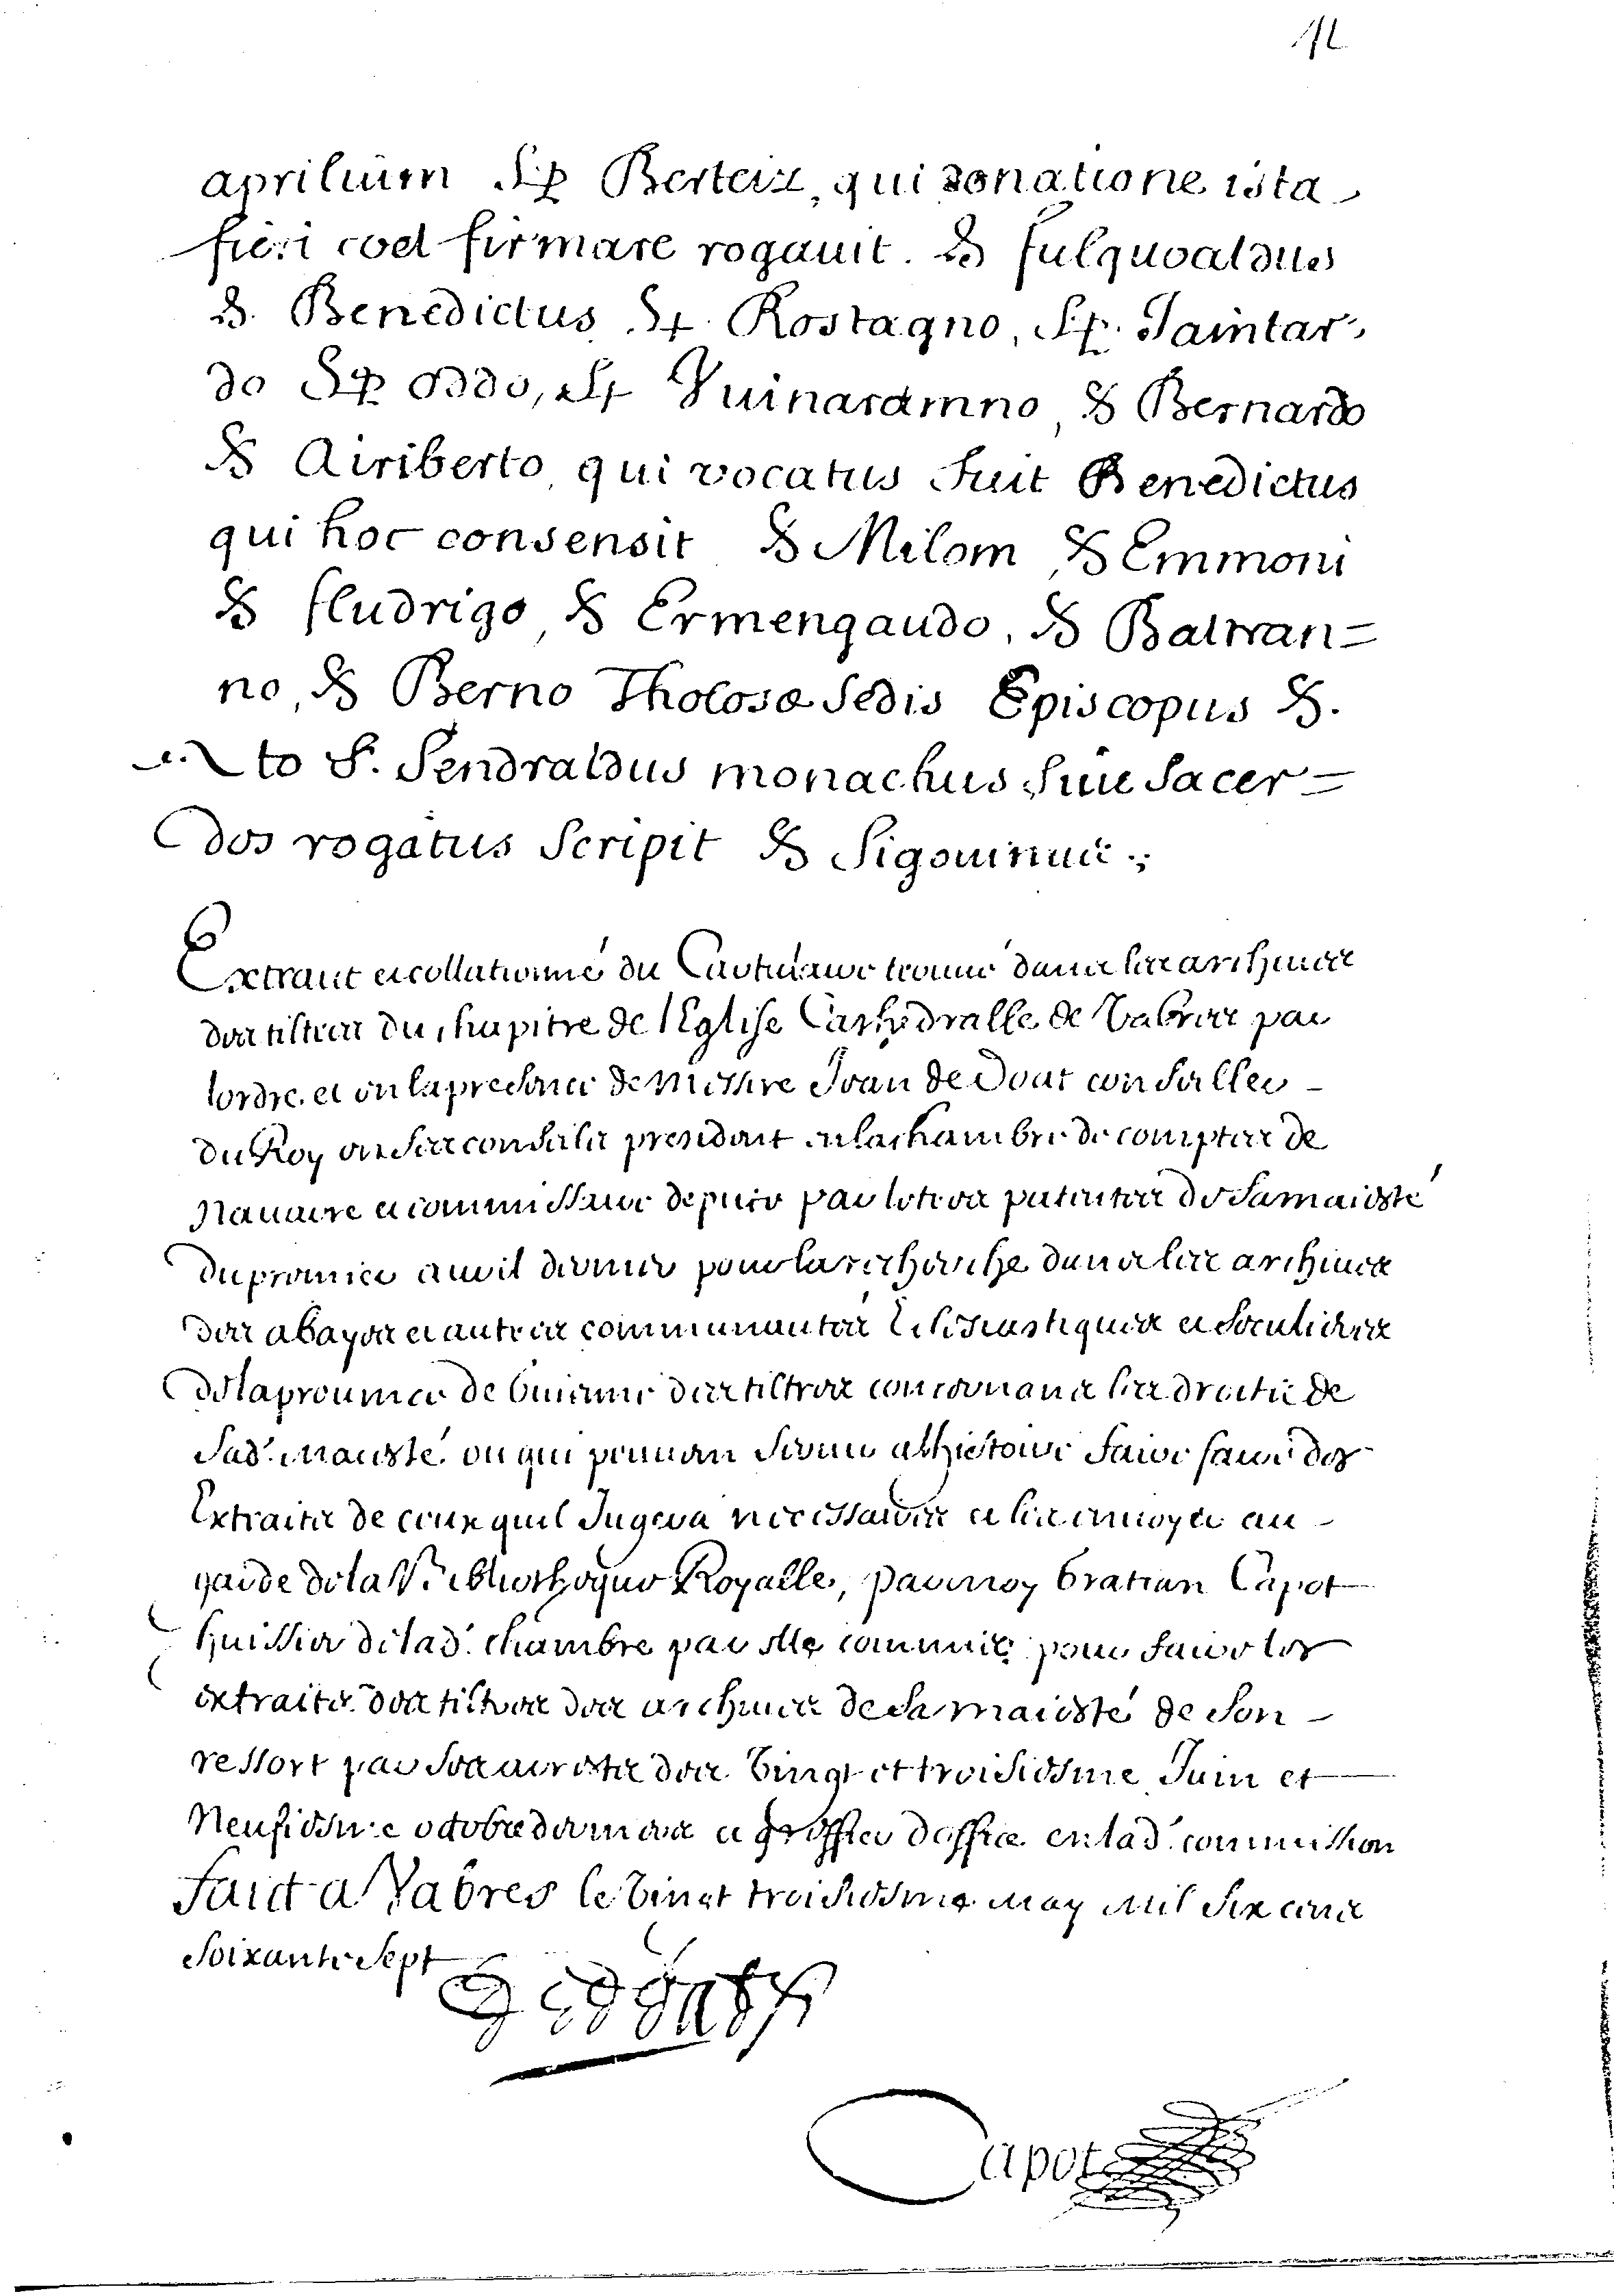 12
aprilium Sp Berteiz, qui donatione ista
fieri vel firmare rogauit. S fulquoaldus
S. Benedictus, S+. Rostagno, S+. Jaintar-
do S+ oddo, S+ Vuinaramno, S Bernardo
S Airiberto, qui vocatus fuit Benedictus
qui hoc consensit S Milom, S Emmoni
S fludrigo, S Ermengaudo, S Baltran=
no, S Berno Tholosæ Sedis Episcopus S.
to S. Sendraldus monachus siue Sacer=
dos rogatus Scripit S Sigouinus.;
Extraict et collationné du Cartulaire trouué dans les archiues
des tiltres du chapitre de l'Eglise Cathedralle de Vabres par
lordre et en la presence de Messire Jean de Doat conseiller
du Roy en ses conseils president en la chambre de comptes de
Nauarre et commissaire depute par letres patentes de Sa maiesté
du premier auril dernier pour la recherche dans les archiues
des abayes et autres communautes Eclesiastiques et Seculieres
de la prouince de Guienne des tiltres concernans les droits de
Sad. maiesté ou qui peuuent seruir a l'histoire faire faire des
Extraits de ceux quil Jugera necessaires et les enuoyer au
garde de la Bibliotheque Royalle, par moy Gratian Capot
huissier de lad. chambre par elle commis pour faire les
extraits des tiltres des archiues de Sa maiesté de Son
ressort par Ses arrestes des Vingt et troisiesme Juin et
Neufiesme octobre derniers et greffier d'office en lad. commission
Faict a Vabres le Vingt troisiesme may mil Six cens
Soixante Sept
De Doat
Capot